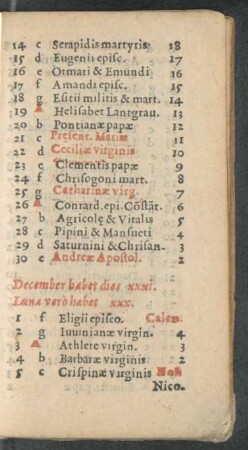 14 c Serapidis martyris 18
15 d Eugenii episc. 17
16 e Otmari & Emundi 16
17 f Amandi episc. 15
18 g Esitii militis & mart. 14
19 A Helisabet Lantgrau. 13
20 b Pontianæ papæ 12
21 c Present. Mariæ 11
22 d Ceciliæ virginis 10
23 e Clementis papæ 9
24 f Chrisogoni mart. 8
25 g Catharinæ virg. 7
26 A Conrard. epi. Cõstãt. 6
27 b Agricolę & Vitalis 5
28 c Pipini & Mansueti 4
29 d Saturnini & Chrisan. 3
30 e Andreæ Apostol. 2
December habet dies xxxi.
Luna verò habet xxx.
1 f Eligii episco. Calen.
2 g Iuuinianæ virgin. 4
3 A Athlete virgin. 3
4 b Barbaræ virginis 2
5 c Crispinæ virginis Non
Nico.